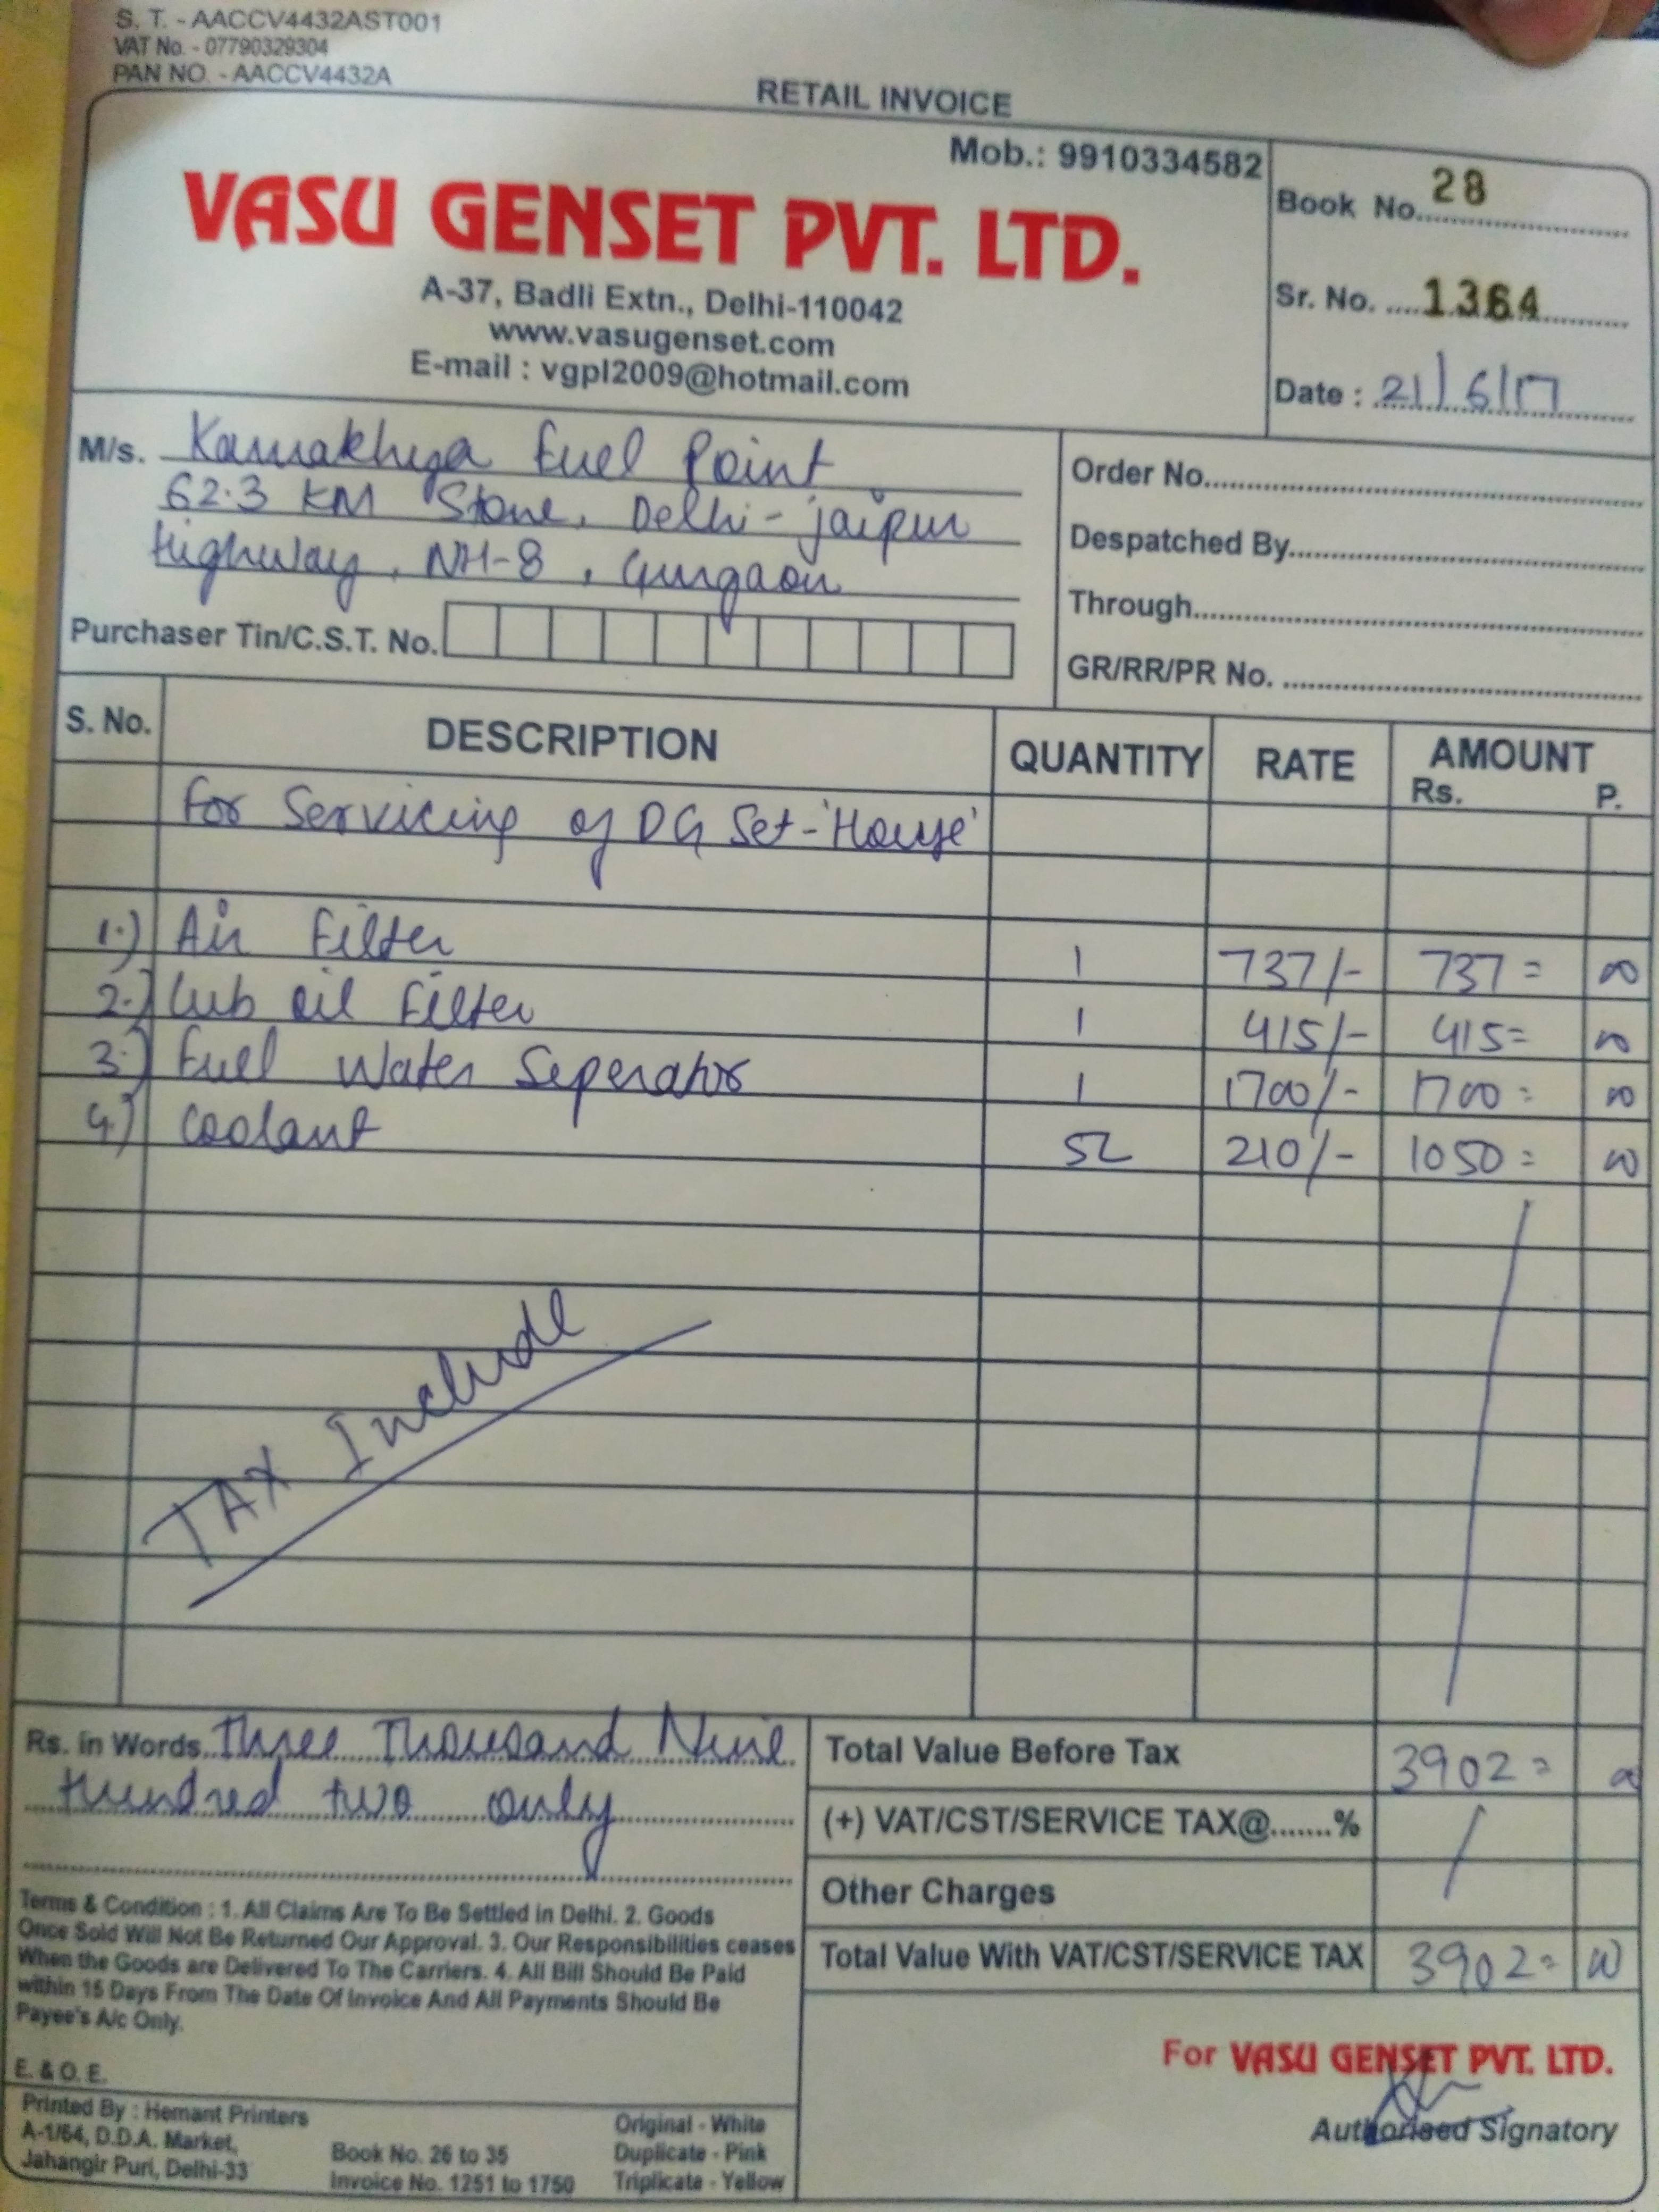 S. T. - AACCV4432AST001
VAT No. - 07790329304
PAN NO. - AACCV4432A
RETAIL INVOICE
Mob.: 9910334582
VASU GENSET PVT. LTD.
A-37, Badli Extn., Delhi-110042
www.vasugenset.com
E-mail : vgpl2009@hotmail.com
Book No. 28
Sr. No. 1364
Date : 21/6/17
M/s. Kamakhya Fuel Point
62.3 KM Stone, Delhi-jaipur
Highway, NH-8, Gurgaon
Purchaser Tin/C.S.T. No.
Order No.
Despatched By
Through
GR/RR/PR No.
S. No. DESCRIPTION QUANTITY RATE AMOUNT
Rs. P.
For Servicing of DG Set-'House'
1.) Air Filter 1 737/- 737= 00
2.) Lub oil Filter 1 415/- 415= 00
3.) Fuel Water Seperator 1 1700/- 1700= 00
4.) Coolant 5L 210/- 1050= 00
TAX Include
Rs. in Words Three Thousand Nine
Hundred two only
Total Value Before Tax 3902= 00
(+) VAT/CST/SERVICE TAX@.......%
Other Charges
Total Value With VAT/CST/SERVICE TAX 3902= 00
Terms & Condition : 1. All Claims Are To Be Settled in Delhi. 2. Goods
Once Sold Will Not Be Returned Our Approval. 3. Our Responsibilities ceases
When the Goods are Delivered To The Carriers. 4. All Bill Should Be Paid
within 15 Days From The Date Of Invoice And All Payments Should Be
Payee's A/c Only.
E. & O. E.
For VASU GENSET PVT. LTD.
Authorised Signatory
Printed By : Hemant Printers
A-1/64, D.D.A. Market,
Jahangir Puri, Delhi-33
Book No. 26 to 35
Invoice No. 1251 to 1750
Original - White
Duplicate - Pink
Triplicate - Yellow